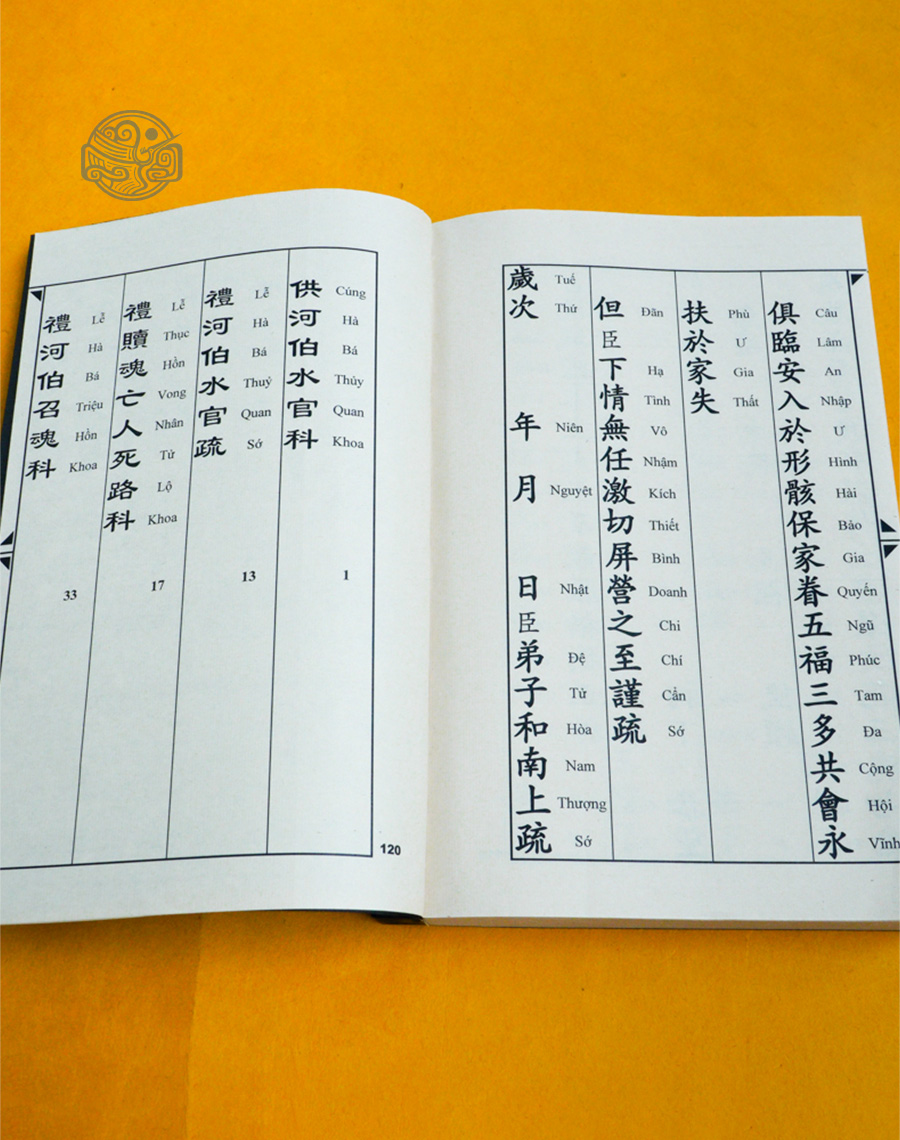 俱臨安入於形骸保家眷五福三多共會永
Câu Lâm An Nhập Ư Hình Hài Bảo Gia Quyến Ngũ Phúc Tam Đa Cộng Hội Vĩnh
扶於家失
Phù Ư Gia Thất
但臣下情無任激切屏營之至謹疏
Đãn Hạ Tình Vô Nhậm Kích Thiết Bình Doanh Chi Chí Cẩn Sớ
歲次 年 月 日臣弟子和南上疏
Tuế Thứ Niên Nguyệt Nhật Đệ Tử Hòa Nam Thượng Sớ
供河伯水官科
Cúng Hà Bá Thủy Quan Khoa
1
禮河伯水官疏
Lễ Hà Bá Thuỷ Quan Sớ
13
禮贖魂亡人死路科
Lễ Thục Hồn Vong Nhân Tử Lộ Khoa
17
禮河伯召魂科
Lễ Hà Bá Triệu Hồn Khoa
33
120